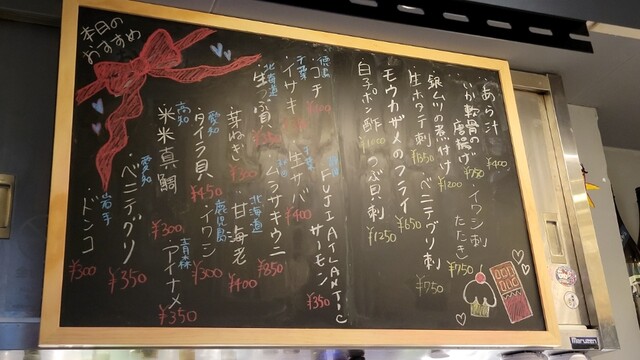 本日の
おすすめ
・あら汁 ¥400
・いか軟骨の唐揚げ ¥750
・イワシ刺
たたき ¥750
・銀ムツの煮付け ¥1200
・ベニテグリ刺 ¥750
・生ホタテ刺
・モウカザメのフライ ¥650
・白子ポン酢 ¥1000
・つぶ貝刺 ¥1250
徳島
・コチ
・FUJI ATLANTIC
サーモン ¥350
千葉
・イサキ
千葉
・生サバ ¥400
北海道
・生つぶ貝
・ムラサキウニ ¥850
・芽ねぎ ¥300
北海道
・甘海老 ¥400
愛知
・タイラ貝 ¥450
鹿児島
・イワシ ¥300
高知
・米米真鯛 ¥300
青森
・アイナメ ¥350
愛知
・ベニテグリ ¥350
岩手
・ドンコ ¥300